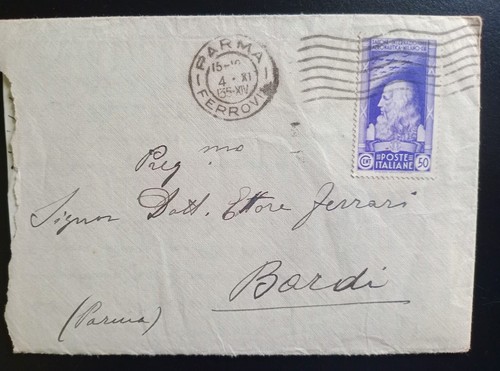 PARMA
15-
4 · XI
35-XIV
FERROVIA
POSTE
ITALIANE
CENT
50
Preg.mo
Signor Dott. Ettore Ferrari
Bardi
(Parma)